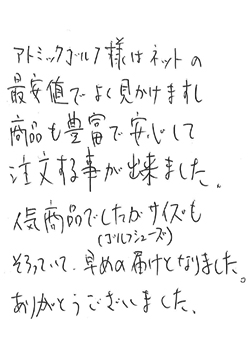 アトミックゴルフ様はネットの
最安値でよく見かけますし
商品も豊富で安心して
注文する事が出来ました。
人気商品でしたがサイズも
(ゴルフシューズ)
そろっていて、早めの届けとなりました。
ありがとうございました、